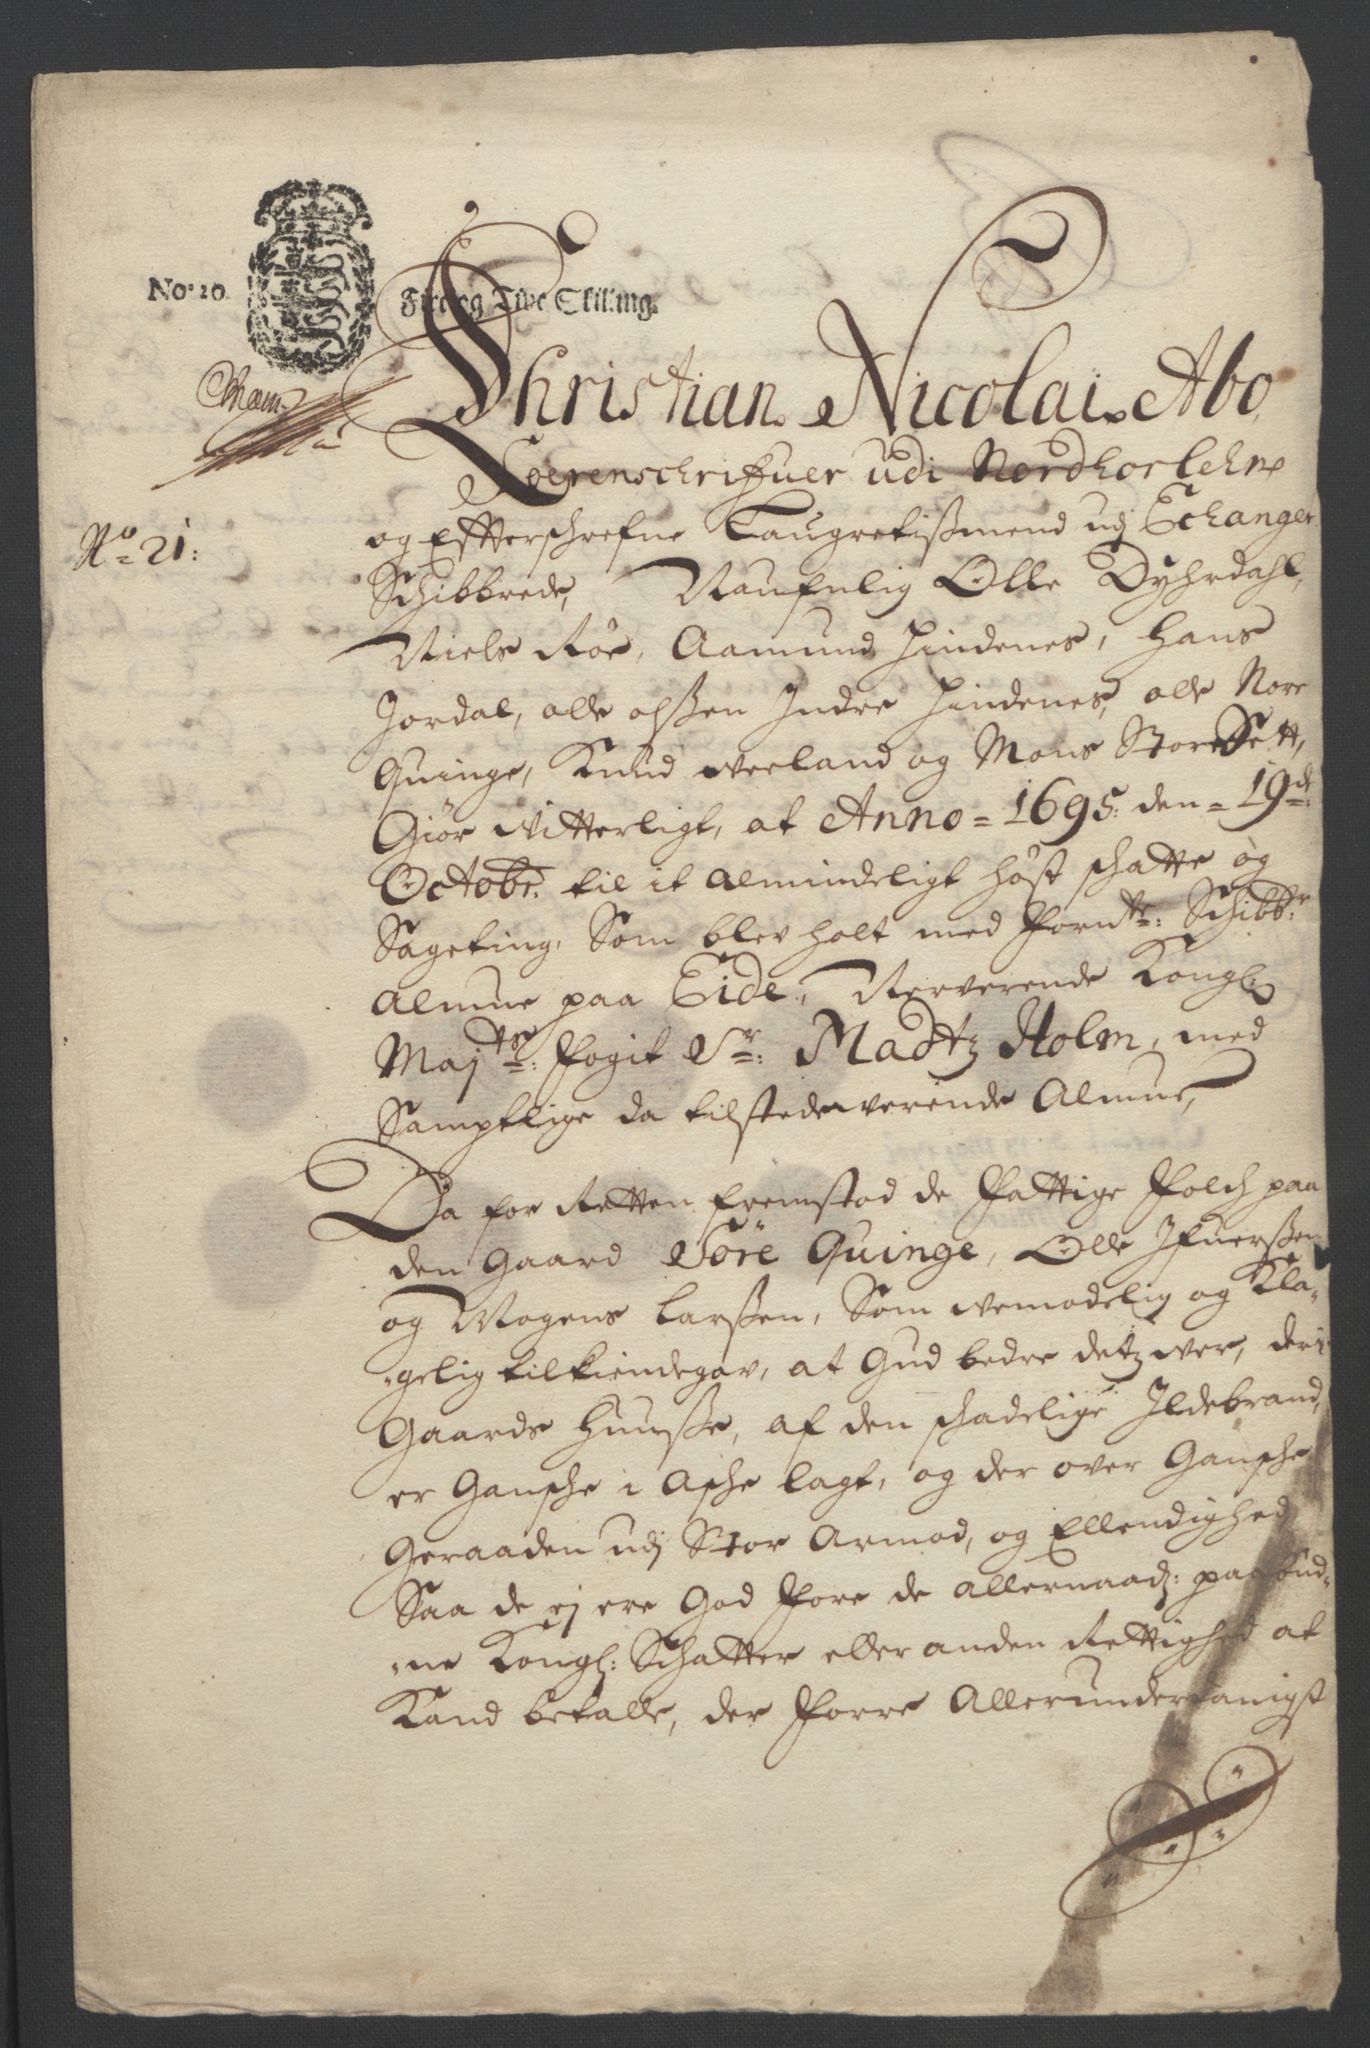 No. 20.
Fire og Tive Skilling.
Christian Nicolai Abo
Soerenschrifuer udi Nordhorlehn
No 21:
og Efftterschrefne Laugretismend udj Echanger
Schibbrede, Naufnlig Olle Dyhrdahl,
Niels Röe, Aamund Hindenes, Hans
Jordal, olle olßen Indre Hindenes, olle Nore
Quinge, Knud Werland og Mons StoreSett,
Giör Vitterligt, at Anno = 1695: den = 19de:
Octobr. til it Almindeligt höst schatte og
Sageting, Som blev holt med Forntr: Schibbr
Almue paa Eide, Nerverende Kongl:
Majts: Fogit Sr: Madtz Holm, med
Samptlige da tilstedeverende Almue,
Da for Retten fremstod de Fattige Folch paa
den Gaard Söre Quinge, Olle Ifuerßen
og Mogens Larßen, Som Vemodelig og Kla=
=gelig tilkiendegav, at Gud bedre detz ver, deris
Gaards Huuße, af den schadelige Ildebrand,
er Gansche i Asche lagt, og der over Gansche
Geraaden udj Stor Armod, og Ellendighed
Saa de ej ere God Fore de allernaad: paabud=
=ne Kongl: Schatter eller anden Rettighed at
Kand betalle, der Forre Allerunderdanigst